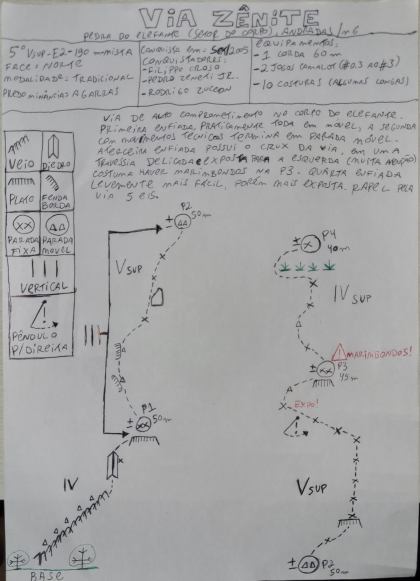 VIA ZÊNITE
PEDRA DO ELEFANTE (SETOR DO CORPO), ANDRADAS/MG
5° VSUP-E2-190m MISTA
FACE: NORTE
MODALIDADE: TRADICIONAL
PREDOMINÂNCIA: AGARRAS
CONQUISTA EM: SET/2005
CONQUISTADORES:
-FILIPPO CROSO
-PEDRO ZENETI JR.
-RODRIGO
EQUIPAMENTOS:
-1 CORDA 60m
-2 JOGOS CAMALOT (#0.3 AO #3)
-10 COSTURAS (ALGUMAS LONGAS)
VIA DE ALTO COMPROMETIMENTO NO CORPO DO ELEFANTE.
PRIMEIRA ENFIADA PRATICAMENTE TODA EM MÓVEL, A SEGUNDA
COM MOVIMENTOS TÉCNICOS TERMINA EM PARADA MÓVEL.
A TERCEIRA ENFIADA POSSUI O CRUX DA VIA, EM UMA
TRAVESSIA DELICADA E EXPOSTA PARA A ESQUERDA (MUITA ATENÇÃO)
COSTUMA HAVER MARIMBONDOS NA P3. QUARTA ENFIADA
LEVEMENTE MAIS FÁCIL, PORÉM MAIS EXPOSTA. RAPEL PELA
VIA
VEIO
DIEDRO
PLATO
FENDA
BORDA
PARADA
FIXA
PARADA
MÓVEL
VERTICAL
PÊNDULO
P/DIREITA
P2
50m
VSUP
P1
50m
IV
BASE
P4
40m
IVSUP
MARIMBONDOS!
P3
45m
EXPO!
VSUP
P2
50m